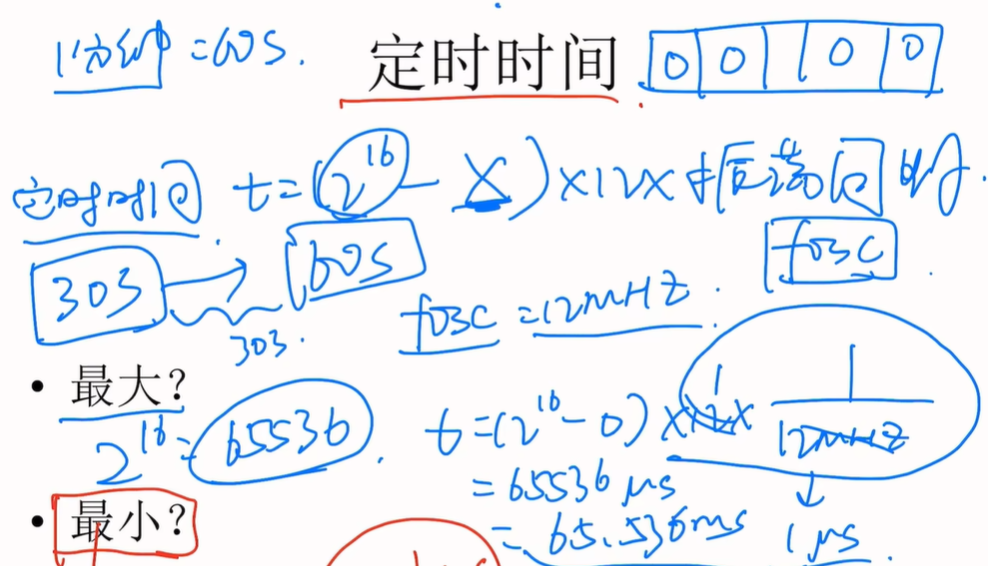 1分钟=60S.
定时时间
0 0 1 0 0
定时时间 t=(2^16-X)×12×振荡周期
30S → 60S
fosc
30S.
fosc=12MHZ.
• 最大?
2^16=65536.
t=(2^16-0)×12× 1/12MHZ
=65536μs
=65.536ms
1μs.
• 最小?